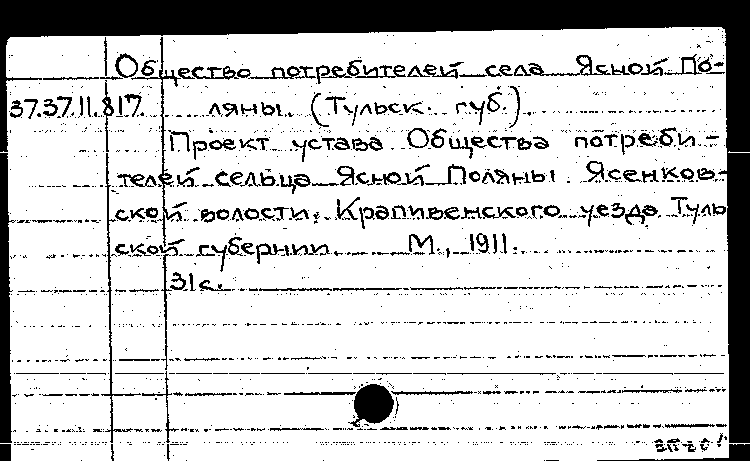 Общество потребителей села Ясной По-
37.37.11.817 ляны. (Тульск. губ.).
Проект устава Общества потреби-
телей сельца Ясной Поляны Ясенков-
ской волости, Крапивенского уезда Туль
ской губернии. М., 1911.
31с.